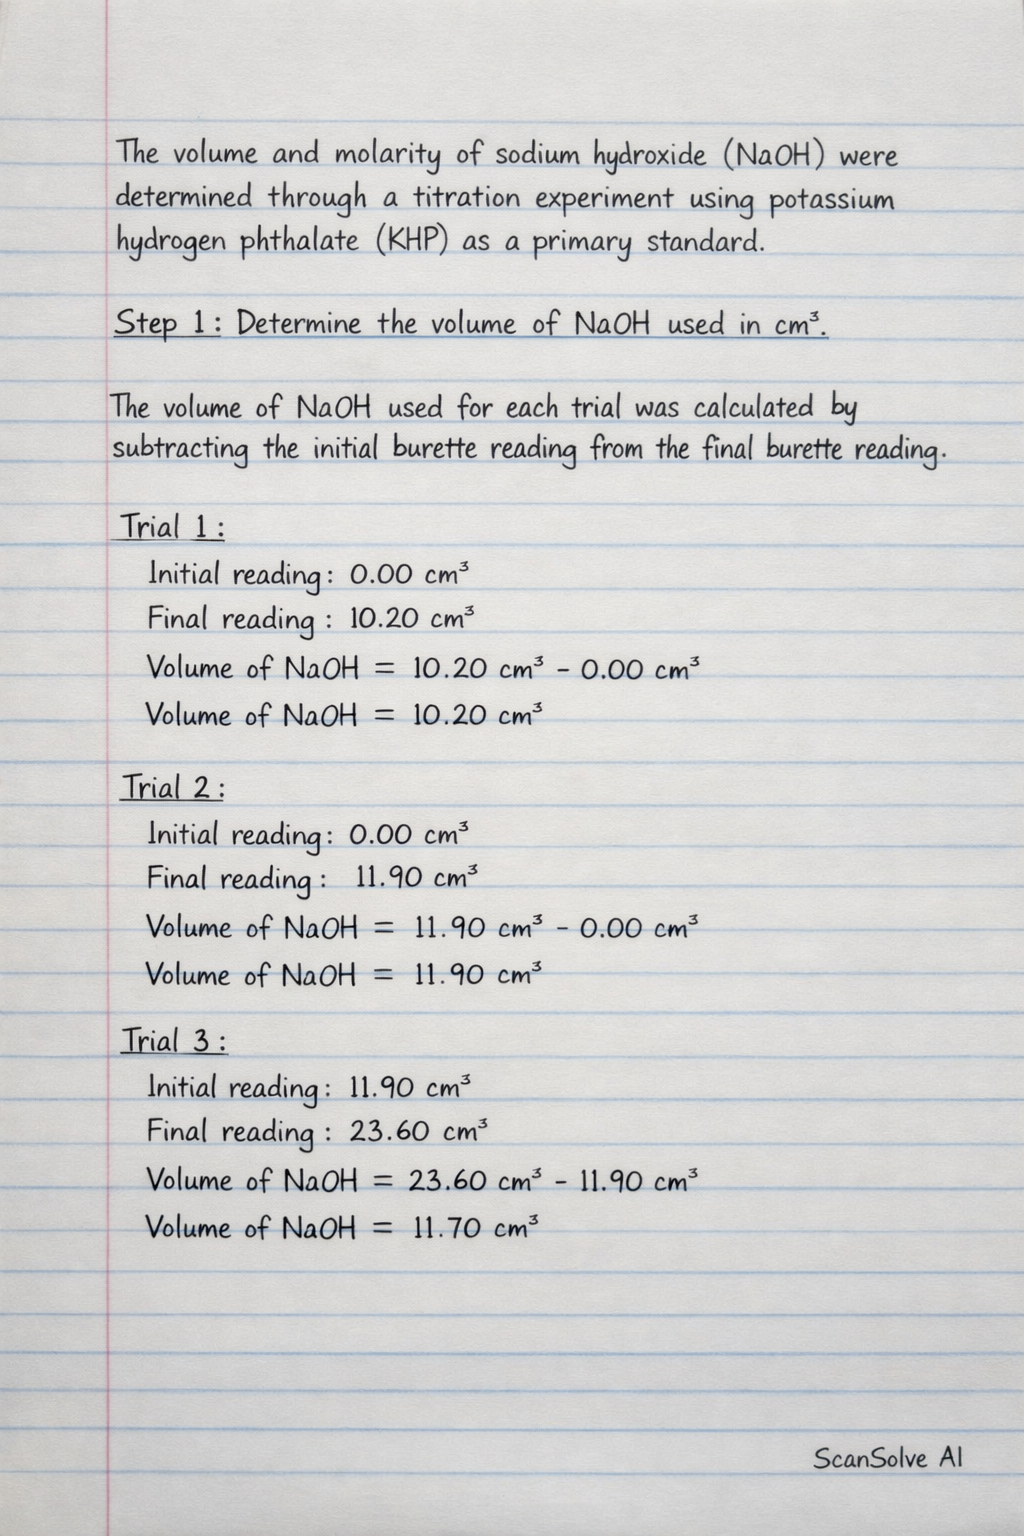 The volume and molarity of sodium hydroxide (NaOH) were
determined through a titration experiment using potassium
hydrogen phthalate (KHP) as a primary standard.
Step 1: Determine the volume of NaOH used in cm³.
The volume of NaOH used for each trial was calculated by
subtracting the initial burette reading from the final burette reading.
Trial 1:
Initial reading: 0.00 cm³
Final reading : 10.20 cm³
Volume of NaOH = 10.20 cm³ - 0.00 cm³
Volume of NaOH = 10.20 cm³
Trial 2:
Initial reading: 0.00 cm³
Final reading: 11.90 cm³
Volume of NaOH = 11.90 cm³ - 0.00 cm³
Volume of NaOH = 11.90 cm³
Trial 3:
Initial reading: 11.90 cm³
Final reading : 23.60 cm³
Volume of NaOH = 23.60 cm³ - 11.90 cm³
Volume of NaOH = 11.70 cm³
ScanSolve AI